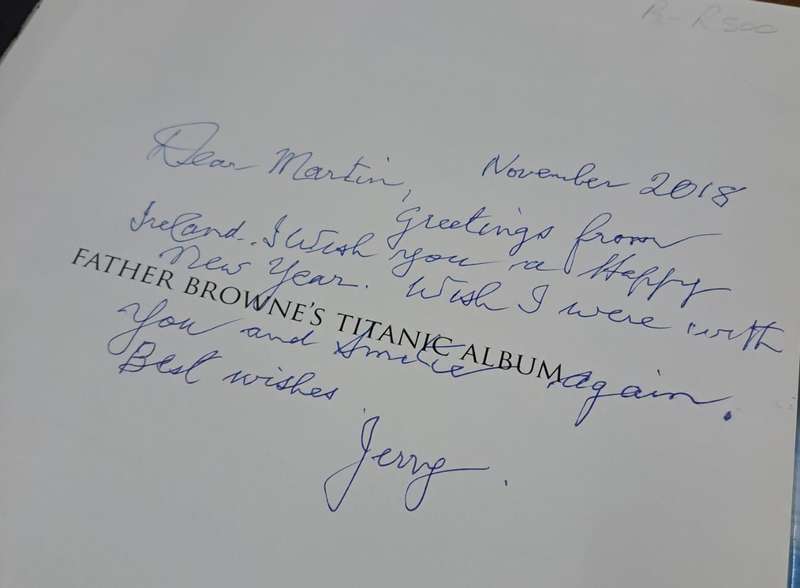 R500
Dear Martin, November 2018
Greetings from
Ireland. I Wish you a Happy
New Year. Wish I were with
FATHER BROWNE'S TITANIC ALBUM
You and again.
Best wishes
Jerry.